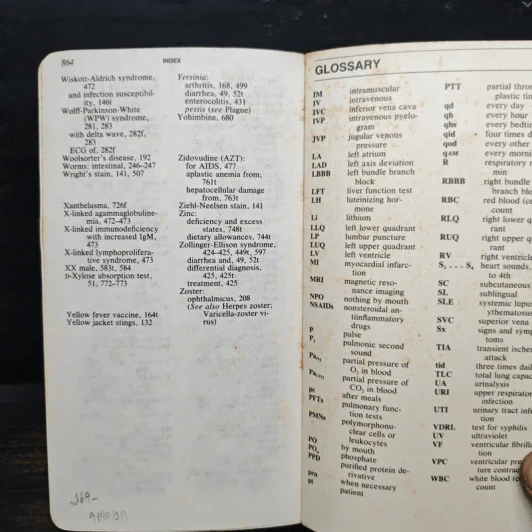 864
INDEX
Wiskott-Aldrich syndrome,
472
and infection susceptibil-
ity, 146t
Wolff-Parkinson-White
(WPW) syndrome,
281, 283
with delta wave, 282f,
283
ECG of, 282f
Woolsorter's disease, 192
Worms: intestinal, 246-247
Wright's stain, 141, 507
Xanthelasma, 726f
X-linked agammaglobuline-
mia, 472-473
X-linked immunodeficiency
with increased IgM,
473
X-linked lymphoprolifera-
tive syndrome, 473
XX male, 583t, 584
D-Xylose absorption test,
51, 772-773
Yellow fever vaccine, 164t
Yellow jacket stings, 132
Yersinia:
arthritis, 168, 499
diarrhea, 49, 52t
enterocolitis, 431
pestis (see Plague)
Yohimbine, 680
Zidovudine (AZT):
for AIDS, 477
aplastic anemia from,
761t
hepatocellular damage
from, 763t
Ziehl-Neelsen stain, 141
Zinc:
deficiency and excess
states, 748t
dietary allowances, 744t
Zollinger-Ellison syndrome,
424-425, 449t, 597
diarrhea and, 49, 52t
differential diagnosis,
425, 425t
treatment, 425
Zoster:
ophthalmicus, 208
(See also Herpes zoster;
Varicella-zoster vi-
rus)
269-
GLOSSARY
IM intramuscular
IV intravenous
IVC inferior vena cava
IVP intravenous pyelo-
gram
JVP jugular venous
pressure
LA left atrium
LAD left axis deviation
LBBB left bundle branch
block
LFT liver function test
LH luteinizing hor-
mone
Li lithium
LLQ left lower quadrant
LP lumbar puncture
LUQ left upper quadrant
LV left ventricle
MI myocardial infarc-
tion
MRI magnetic reso-
nance imaging
NPO nothing by mouth
NSAIDs nonsteroidal an-
tiinflammatory
drugs
P pulse
P₂ pulmonic second
sound
partial pressure of
O₂ in blood
partial pressure of
CO₂ in blood
pc after meals
PFTs pulmonary func-
tion tests
PMNs polymorphonu-
clear cells or
leukocytes
PO by mouth
PO₄ phosphate
PPD purified protein de-
rivative
prn when necessary
pt patient
PTT partial thron
plastic tin
qd every day
qh every hour
qhs every bedti
qid four times d
qod every other
qAM every morni
R respiratory r
min
RBBB right bundle
branch blo
RBC red blood (ce
count
RLQ right lower q
rant
RUQ right upper q
rant
RV right ventricle
S₁ . . . S₄ heart sounds,
to 4th
SC subcutaneous
SL sublingual
SLE systemic lupu
thematosus
SVC superior vena
Sx signs and symp
toms
TIA transient ische
attack
tid three times dail
TLC total lung capac
UA urinalysis
URI upper respirator
infection
UTI urinary tract inf
tion
VDRL test for syphilis
UV ultraviolet
VF ventricular fibrilla
tion
VPC ventricular pre
ture contrac
WBC white blood (c
count